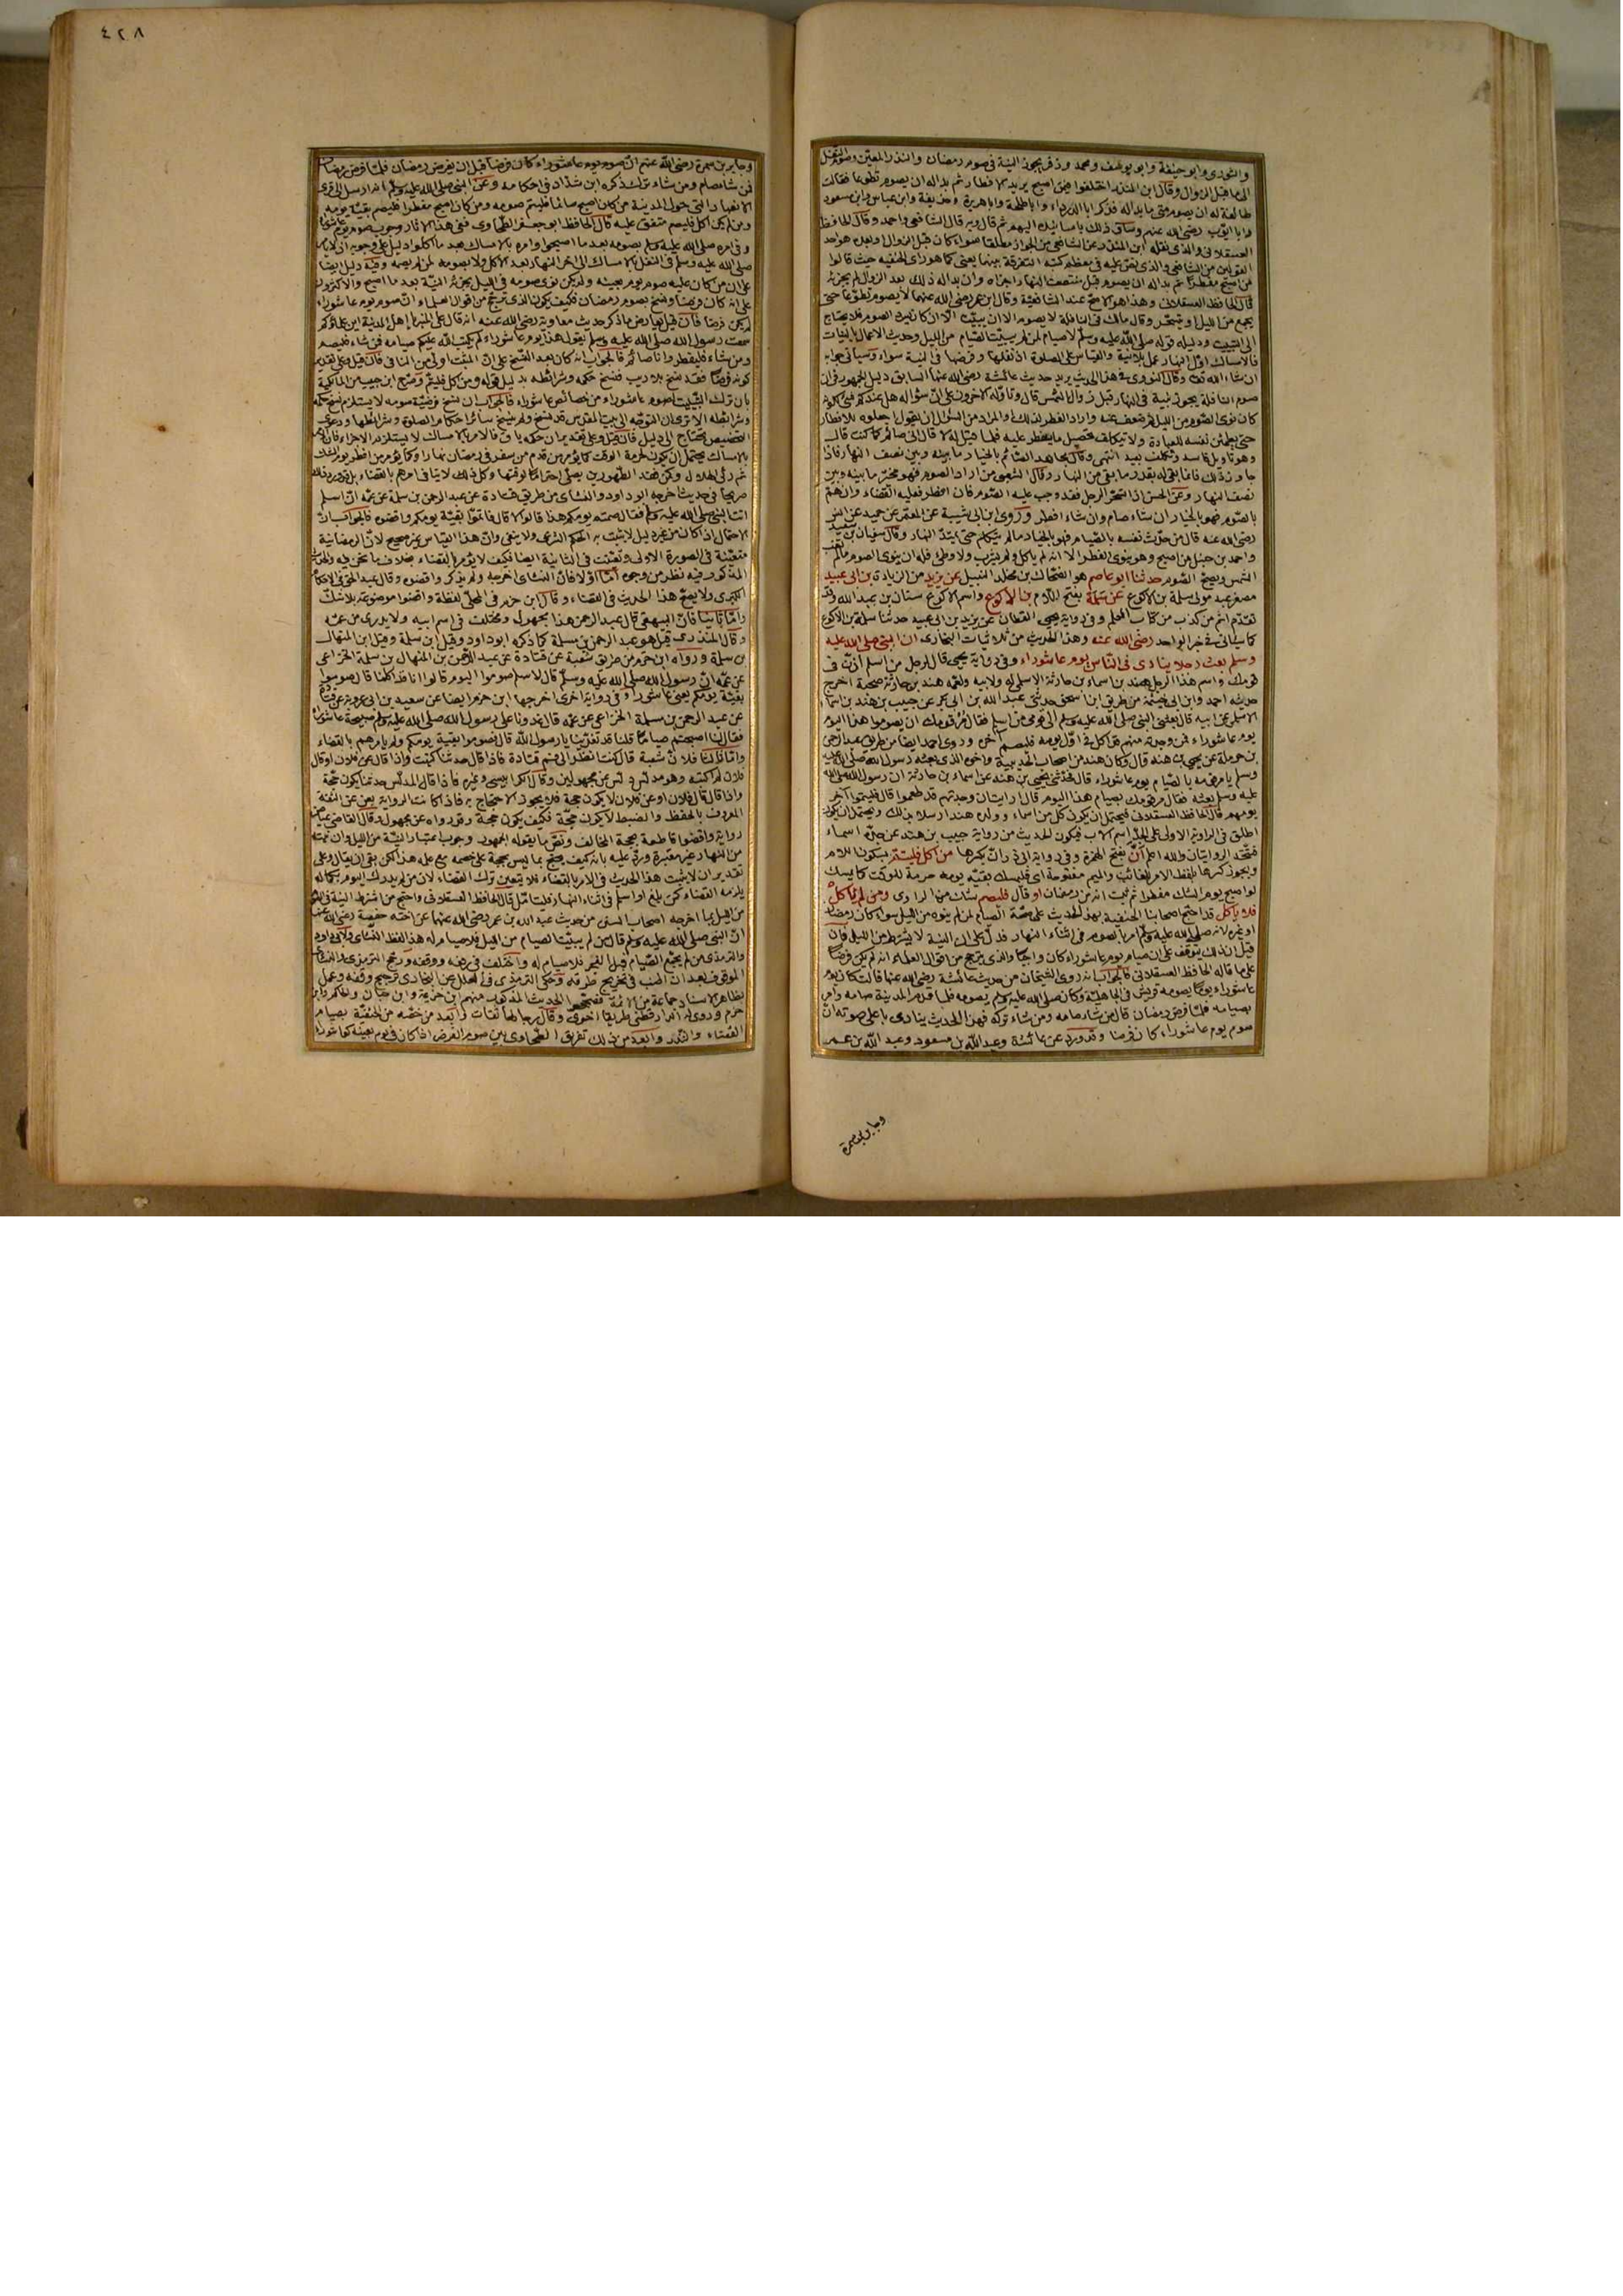 والثوري وابو حنيفة وابو يوسف ومحمد وزفر يجوز النية في صوم رمضان والنذر المعين وصوم النفل
الى ما قبل الزوال وقال ابن المنذر اختلفوا فيمن اصبح يريد الافطار ثم بدا له ان يصوم تطوعا فقالت
طائفة له ان يصوم متى ما بدا له فذكر ابا الدرداء وابا طلحة وابا هريرة وحذيفة وابن عباس وابن مسعود
وابا ايوب رضي الله عنهم وساق ذلك باسانيده اليهم ثم قال وبه قال الشافعي واحمد وقال الحافظ
العسقلاني والذي نقله ابن المنذر عن الشافعي من الجواز مطلقا سواء كان قبل الزوال وبعده هو احد
القولين من الشافعي والذي نص عليه في معظم كتبه التفرقة بينهما يعني كما هو رأى الحنفية حيث قالوا
من اصبح مفطرا ثم بدا له ان يصوم قبل منتصف النهار اجزاه وان بدا له ذلك بعد الزوال لم يجزئه
قال الحافظ العسقلاني وهذا هو الاصح عند الشافعية وقال ابن عمر رضي الله عنهما لا يصوم تطوعا حتى
يجمع من الليل او يتسحر وقال مالك في النافلة لا يصوم الا ان يبيت الا ان كان يسرد الصوم فلا يحتاج
الى التبييت ودليله قوله صلى الله عليه وسلم لا صيام لمن لم يبيت الصيام من الليل وحديث الاعمال بالنيات
فالامساك اول النهار عمل بلا نية والقياس على الصلوة اذ نفلها وفرضها في النية سواء وسيأتي جوابه
ان شاء الله تعالى وقال النووي في هذا الحديث يريد حديث عائشة رضي الله عنها السابق دليل الجمهور في ان
صوم النافلة يجوز بنية في النهار قبل زوال الشمس قال وتاوله الاخرون على ان سؤاله هل عندكم شيء لكونه
كان نوى الصوم من الليل ثم ضعف عنه واراد الفطر لذلك
حتى يطمئن نفسه للعبادة ولا يتكلف لتحصيل ما يفطر عليه فلما قيل له لا قال اني صائم كما كنت قال
وهو تاويل فاسد وتكلف بعيد انتهى وقال مجاهد الصائم بالخيار ما بينه وبين نصف النهار فاذا
جاوز ذلك فانما بقي له بقدر ما بقي من النهار وقال الشعبي من اراد الصوم فهو مخير ما بينه وبين
نصف النهار وعن الحسن اذا تسحر الرجل فقد وجب عليه الصوم فان افطر فعليه القضاء وان هم
بالصوم فهو بالخيار ان شاء صام وان شاء افطر وروى ابن ابي شيبة عن المعتمر عن حميد عن انس
رضي الله عنه قال من حدث نفسه بالصيام فهو بالخيار ما لم يتكلم حتى يمتد النهار وقال سفيان بن سعيد
واحمد بن حنبل من اصبح وهو ينوي الفطر الا انه لم ياكل ولم يشرب ولا وطئ فله ان ينوي الصوم ما لم تغب
الشمس ويصح الصوم حدثنا ابو عاصم هو الضحاك بن مخلد النبيل عن يزيد من الزيادة بن ابي عبيد
مصغر عبد مولى سلمة بن الاكوع عن سلمة بفتح اللام بن الاكوع واسم الاكوع سنان بن عبد الله وقد
تقدم في اثم من كذب من كتاب العلم وفي رواية يحيى القطان عن يزيد بن ابي عبيد حدثنا سلمة بن الاكوع
كما سيأتي في خبر الواحد رضي الله عنه وهذا الحديث من ثلاثيات البخاري ان النبي صلى الله عليه
وسلم بعث رجلا ينادي في الناس يوم عاشوراء وفي رواية يحيى قال لرجل من اسلم اذن في
قومك واسم هذا الرجل هند بن اسماء بن حارثة الاسلمي له ولابيه ولعمه هند بن حارثة صحبة اخرج
حديثه احمد وابن ابي خيثمة من طريق ابن اسحق حدثني عبد الله بن ابي بكر عن حبيب بن هند بن اسماء
الاسلمي عن ابيه قال بعثني النبي صلى الله عليه وسلم الى قومي من اسلم فقال مر قومك ان يصوموا هذا اليوم
يوم عاشوراء فمن وجدته منهم قد اكل في اول يومه فليصم آخره وروى احمد ايضا من طريق عبد الرحمن
بن حرملة عن يحيى بن هند قال وكان هند من اصحاب الحديبية واخوه الذي بعثه رسول الله صلى الله عليه
وسلم يامر قومه بالصيام يوم عاشوراء قال فحدثني يحيى بن هند عن اسماء بن حارثة ان رسول الله صلى الله
عليه وسلم بعثه فقال مر قومك بصيام هذا اليوم قال ارايت ان وجدتهم قد طعموا قال فليتموا آخر
يومهم قال الحافظ العسقلاني فيحتمل ان يكون كل من اسماء وولده هند ارسلا بذلك ويحتمل ان يكون
اطلق في الرواية الاولى على الجد اسم الاب فيكون الحديث من رواية حبيب بن هند عن جده اسماء
فتتحد الروايتان والله اعلم أن بفتح الهمزة وفي رواية ابي ذر ان بكسرها من اكل فليتم بسكون اللام
ويجوز كسرها بلفظ الامر الغائب والميم مفتوحة اي فليمسك بقية يومه حرمة للوقت كما يمسك
لو اصبح يوم الشك مفطرا ثم ثبت انه من رمضان او قال فليصم شك من الراوي ومن لم ياكل
فلا ياكل قد احتج اصحابنا الحنفية بهذا الحديث على صحة الصيام لمن لم ينوه من الليل سواء كان رمضان
او غيره لانه صلى الله عليه وسلم امر بالصوم في اثناء النهار فدل على ان النية لا يشترط من الليل فان
قيل ان ذلك يتوقف على ان صيام يوم عاشوراء كان واجبا والذي يترجح من اقوال العلماء انه لم يكن فرضا
على ما قاله الحافظ العسقلاني فالجواب انه روى الشيخان من حديث عائشة رضي الله عنها قالت كان يوم
عاشوراء يوما يصومه قريش في الجاهلية وكان صلى الله عليه وسلم يصومه فلما قدم المدينة صامه وامر
بصيامه فلما فرض رمضان قال من شاء صامه ومن شاء تركه فهذا الحديث ينادي باعلى صوته ان
صوم يوم عاشوراء كان فرضا وقد ورد عن عائشة وعبد الله بن مسعود وعبد الله بن عمر
وجابر بن سمرة
٤٢٨
وجابر بن سمرة رضي الله عنهم ان صوم يوم عاشوراء كان فرضا قبل ان يفرض رمضان فلما فرض رمضان
فمن شاء صام ومن شاء ترك ذكره ابن شداد في احكامه وعن النبي صلى الله عليه وسلم انه ارسل الى قرى
الانصار التي حول المدينة من كان اصبح صائما فليتم صومه ومن كان اصبح مفطرا فليصم بقية يومه
ومن لم يكن اكل فليصم متفق عليه قال الحافظ ابو جعفر الطحاوي ففي هذا الاثار وجوب صوم يوم عاشوراء
وفي امره صلى الله عليه وسلم بصومه بعد ما اصبحوا وامره بالامساك بعد ما اكلوا دليل على وجوبه اذ لا يامر
صلى الله عليه وسلم في النفل بالامساك الى آخر النهار بعد الاكل ولا بصومه لمن لم يصمه وفيه دليل ايضا
على ان من كان عليه صوم يوم بعينه ولم يكن نوى صومه في الليل يجزئه النية بعد ما اصبح والاكثرون
على انه كان فرضا ونسخ بصوم رمضان فكيف يكون الذي ترجح من اقوال العلماء ان صوم يوم عاشوراء
لم يكن فرضا فان قيل يعارض ما ذكر حديث معاوية رضي الله عنه انه قال على المنبر يا اهل المدينة اين علماؤكم
سمعت رسول الله صلى الله عليه وسلم يقول هذا يوم عاشوراء لم يكتب الله عليكم صيامه فمن شاء فليصم
ومن شاء فليفطر وانا صائم فالجواب انه كان بعد النسخ على ان المثبت اولى من النافي فان قيل وعلى تقدير
كونه فرضا فقد نسخ بلا ريب فنسخ حكمه وشرائطه بدليل قوله ومن اكل فليتم وصرح ابن حبيب من المالكية
بان ترك التبييت لصوم عاشوراء من خصائص عاشوراء فالجواب ان نسخ فرضية صومه لا يستلزم نسخ حكمه
وشرائطه الا ترى ان التوجه الى بيت المقدس قد نسخ ولم ينسخ سائر احكام الصلوة وشرائطها ودعوى
التخصيص يحتاج الى دليل فان قيل وعلى تقدير ان حكمه باق فالامر بالامساك لا يستلزم الاجزاء فان الامر
بالامساك يحتمل ان يكون لحرمة الوقت كما يؤمر من قدم من سفر في رمضان نهارا وكما يؤمر من افطر يوم الشك
ثم رئي الهلال وكمن فقد الطهورين يصلي احتراما لوقتها وكل ذلك لا ينافي امرهم بالقضاء بل قد ورد ذلك
صريحا في حديث اخرجه ابو داود والنسائي من طريق قتادة عن عبد الرحمن بن سلمة عن عمه ان اسلم
اتت النبي صلى الله عليه وسلم فقال صمتم يومكم هذا قالوا لا قال فاتموا بقية يومكم واقضوه فالجواب ان
الاحتمال اذا كان من غير دليل لا يثبت به الحكم الشرعي ولا ينفى وان هذا القياس غير صحيح لان الرمضانية
متعينة في الصورة الاولى وتعينت في الثانية ايضا فكيف لا يؤمر بالقضاء بخلاف ما نحن فيه والحديث
المذكور فيه نظر من وجوه أما اولا فان النسائي اخرجه ولم يذكر واقضوه وقال عبد الحق في الاحكام
الكبرى ولا يصح هذا الحديث في القضاء وقال ابن حزم في المحلى لفظة واقضوا موضوعة بلا شك
واما ثانيا فان البيهقي قال عبد الرحمن هذا مجهول ومختلف في اسم ابيه ولا يدرى من عمه
وقال المنذري قيل هو عبد الرحمن بن مسلمة كما ذكره ابو داود وقيل ابن سلمة وقيل ابن المنهال
بن سلمة ورواه ابن حزم من طريق شعبة عن قتادة عن عبد الرحمن بن المنهال بن سلمة الخزاعي
عن عمه ان رسول الله صلى الله عليه وسلم قال لاسلم صوموا اليوم قالوا انا قد اكلنا قال صوموا
بقية يومكم يعني عاشوراء وفي رواية اخرى اخرجها ابن حزم ايضا عن سعيد بن ابي عروبة عن قتادة
عن عبد الرحمن بن سلمة الخزاعي عن عمه قال غدونا على رسول الله صلى الله عليه وسلم صبيحة عاشوراء
فقال لنا اصبحتم صياما قلنا قد تغدينا يا رسول الله قال فصوموا بقية يومكم ولم يامرهم بالقضاء
واما ثالثا فلان شعبة قال كنت انظر الى فم قتادة فاذا قال حدثنا كتبت واذا قال عن فلان او قال
فلان لم اكتبه وهو مدلس دلس عن مجهولين وقال الكرابيسي وغيره فاذا قال المدلس حدثنا يكون حجة
واذا قال قال فلان او عن فلان لا يكون حجة فلا يجوز الاحتجاج به فاذا كانت الرواية بعن عن الثقة
المعروف بالحفظ والضبط لا يكون حجة فكيف يكون حجة وقد رواه عن مجهول وقال القاضي عياض
رواية واقضوا قاطعة بحجة المخالف ونص ما يقوله الجمهور وجوب اعتبار النية من الليل وان نيته
من النهار غير معتبرة ورد عليه بانه كيف يحتج بما ليس بحجة على خصمه مع علمه هذا لكن بقي ان يقال وعلى
تقدير ان لا يثبت هذا الحديث في الامر بالقضاء فلا يتعين ترك القضاء لان من لم يدرك اليوم بكماله
يلزمه القضاء كمن بلغ او اسلم في اثناء النهار فليتامل قال الحافظ العسقلاني واحتج من اشترط النية في الصوم
من الليل بما اخرجه اصحاب السنن من حديث عبد الله بن عمر رضي الله عنهما عن اخته حفصة رضي الله عنها
ان النبي صلى الله عليه وسلم قال من لم يبيت الصيام من الليل فلا صيام له هذا لفظ النسائي ولابي داود
والترمذي من لم يجمع الصيام قبل الفجر فلا صيام له واختلف في رفعه ووقفه ورجح الترمذي والنسائي
الموقوف بعد ان اطنب في تخريج طرقه وحكى الترمذي في العلل عن البخاري ترجيح وقفه وعمل
بظاهر الاسناد جماعة من الائمة فصححوا الحديث المذكور منهم ابن خزيمة وابن حبان والحاكم وابن
حزم وروى له الدارقطني طريقا اخرى وقال رجالها ثقات وابعد من خصه من الحنفية بصيام
القضاء والنذر وابعد من ذلك تفريق الطحاوي بين صوم الفرض اذا كان في يوم بعينه كعاشوراء